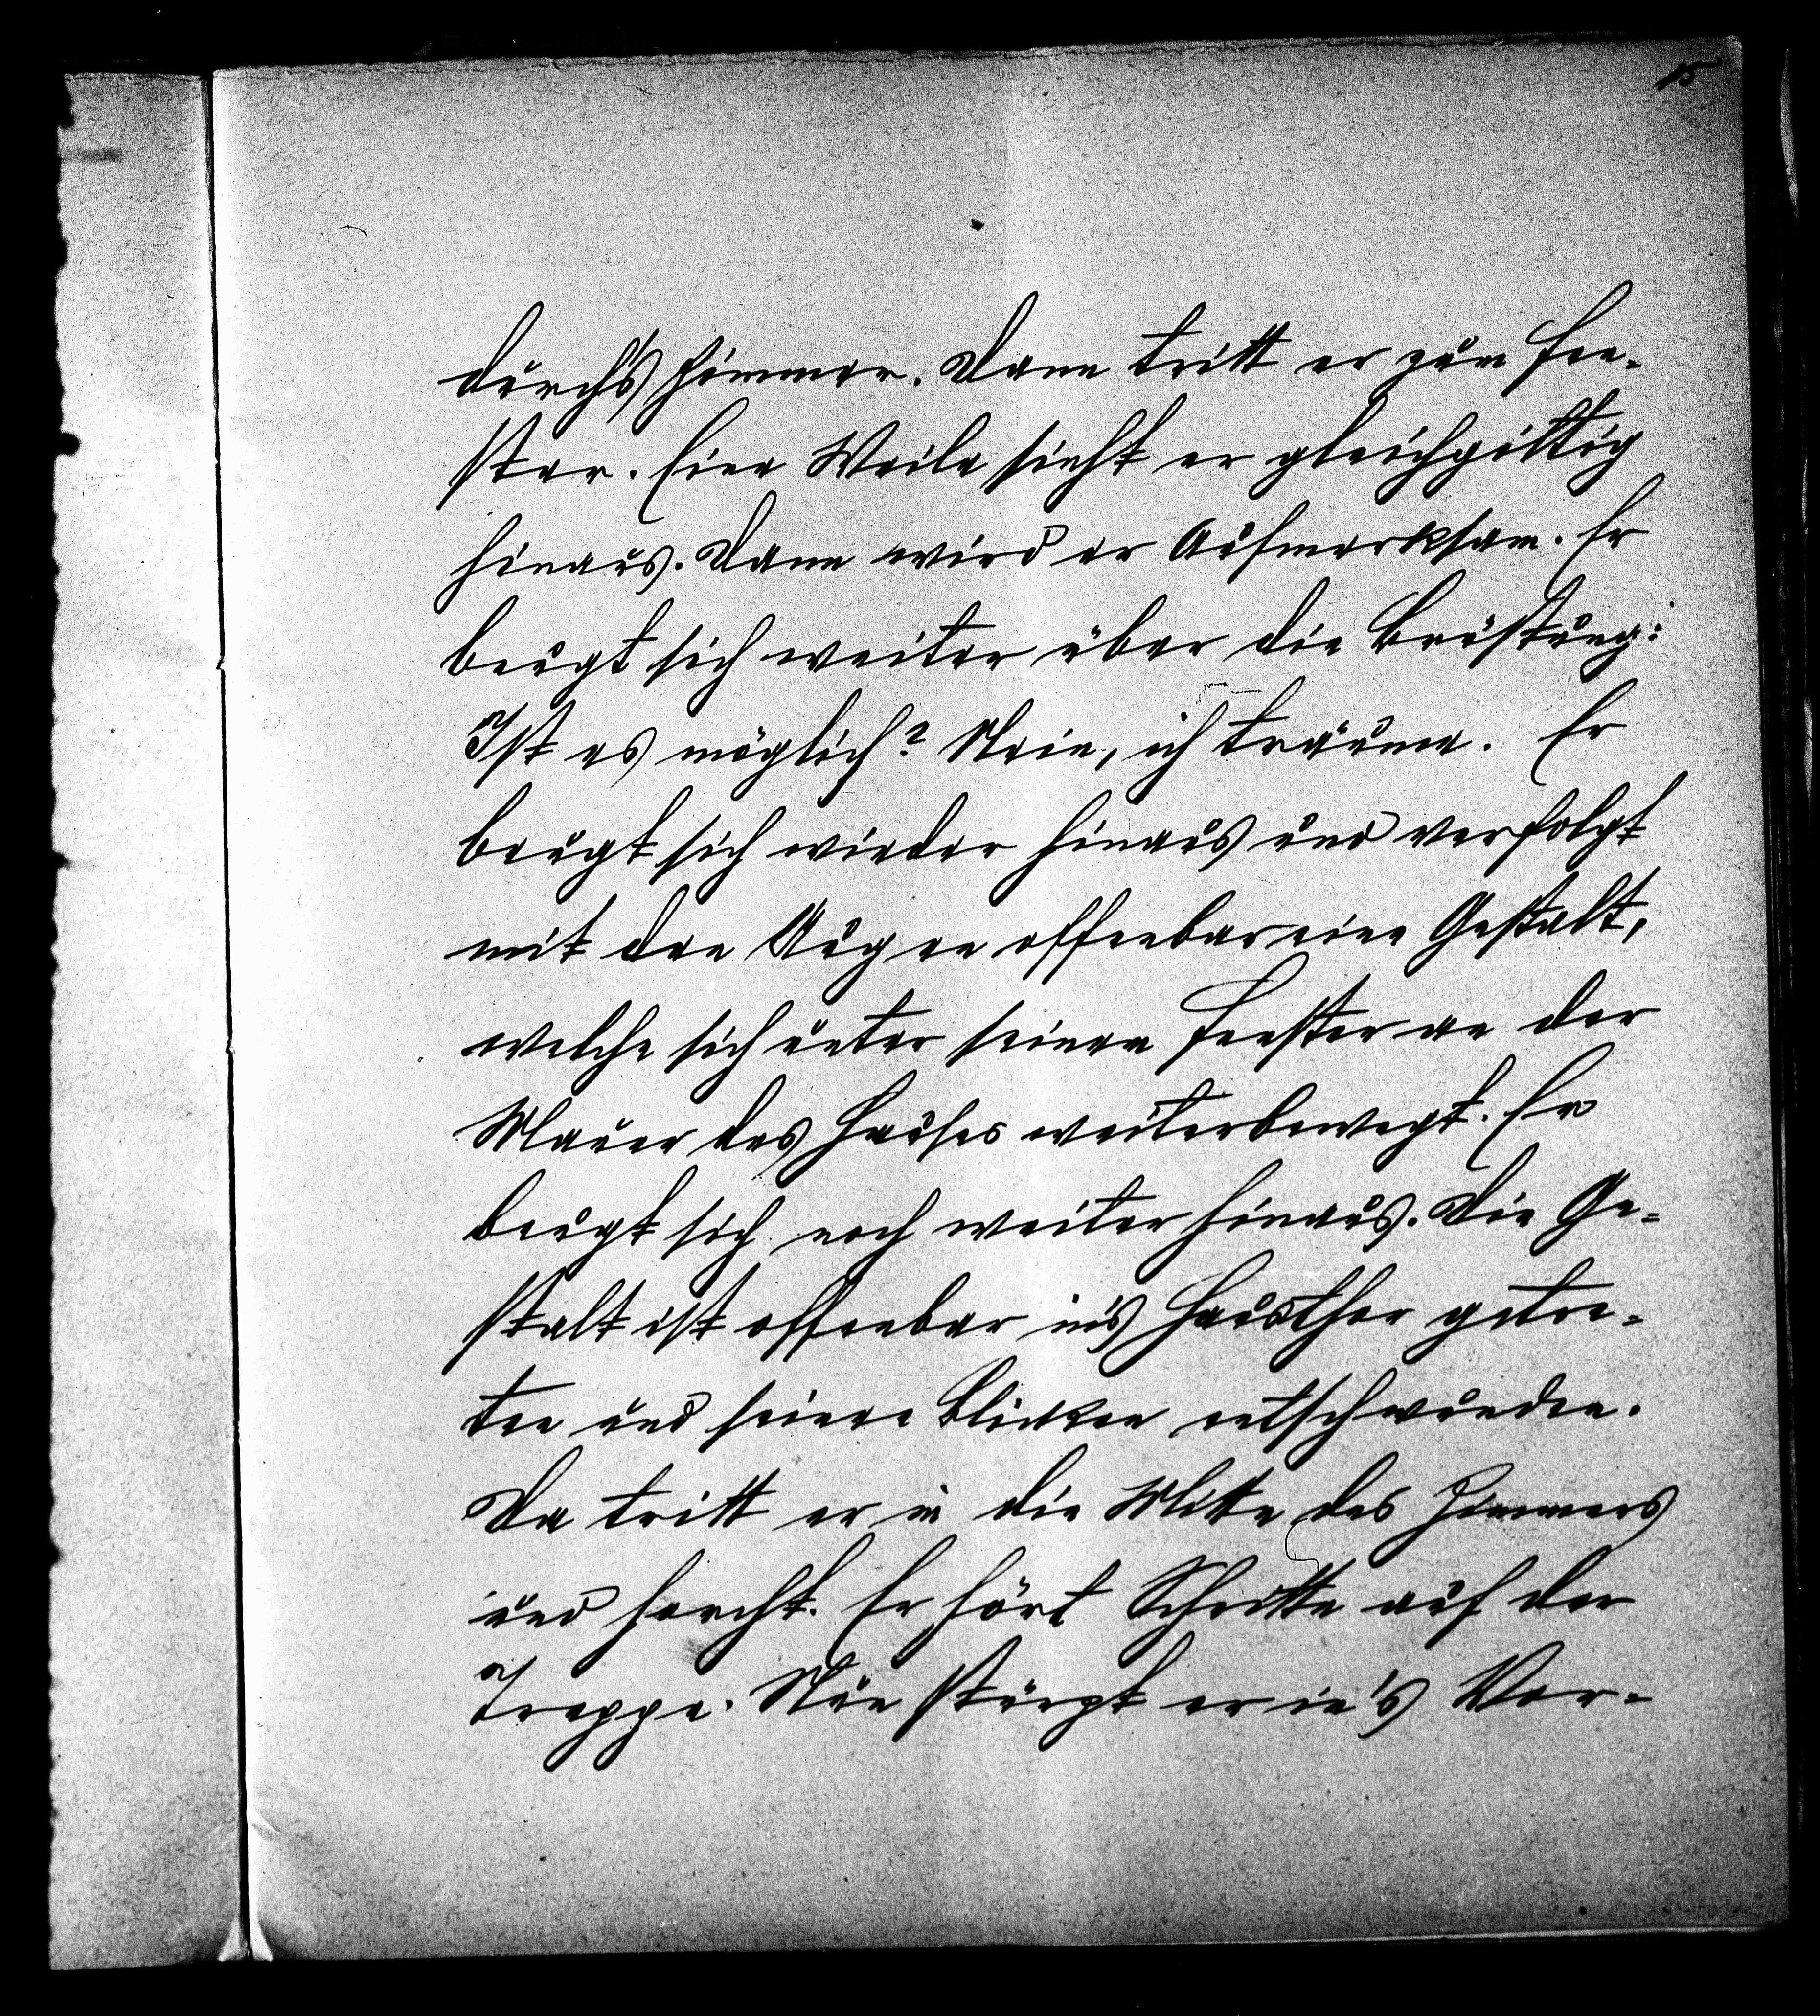 15
durch's Zimmer. Dann tritt er zum Fen-
ster. Eine Weile sieht er gleichgiltig
hinaus. Dann wird er aufmerksam. Er
beugt sich weiter über die Brüstung:
Ist es möglich? Nein, ich träume. Er
beugt sich wieder hinaus und verfolgt
mit den Augen offenbar eine Gestalt,
welche sich unter seinem Fenster an der
Mauer des Hauses weiterbewegt. Er
beugt sich noch weiter hinaus. Die Ge-
stalt ist offenbar in's Hausthor getre-
ten und seinen Blicken entschwunden.
Da tritt er in die Mitte des Zimmers
und horcht. Er hört Schritte auf der
Treppe. Nun stürzt er in's Vor-